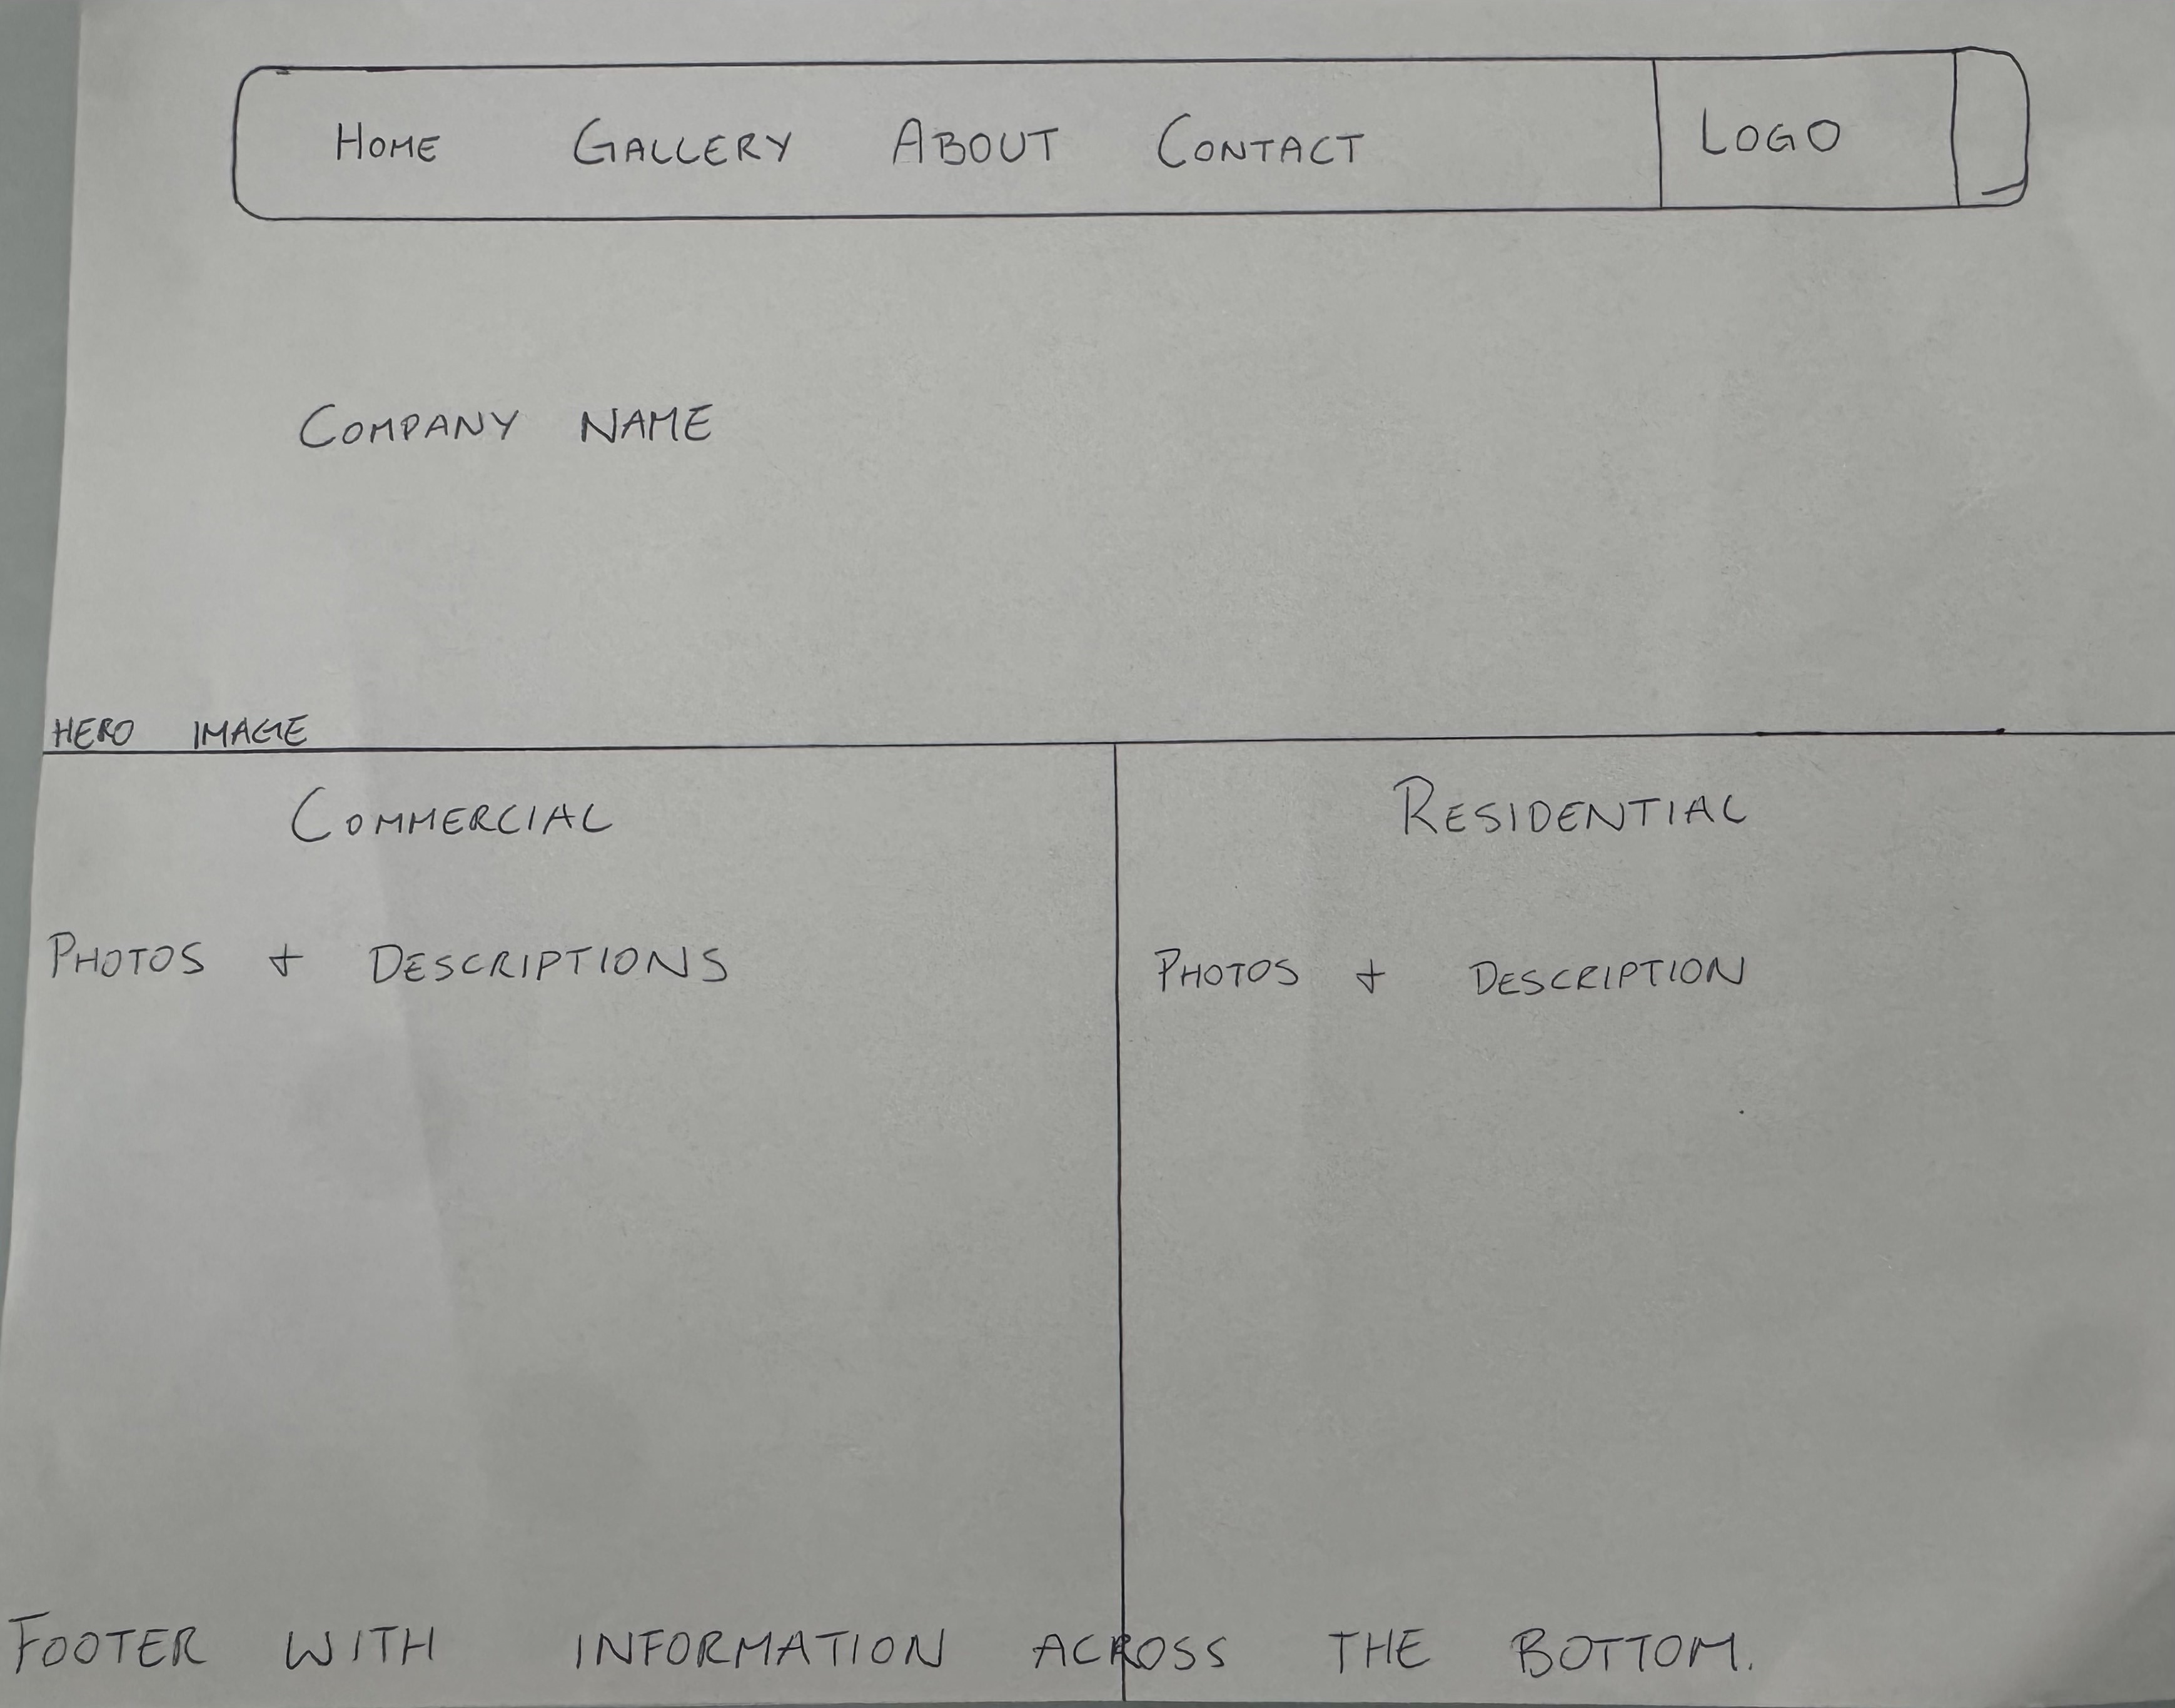 HOME GALLERY ABOUT CONTACT LOGO
COMPANY NAME
HERO IMAGE
COMMERCIAL RESIDENTIAL
PHOTOS + DESCRIPTIONS PHOTOS + DESCRIPTION
FOOTER WITH INFORMATION ACROSS THE BOTTOM.